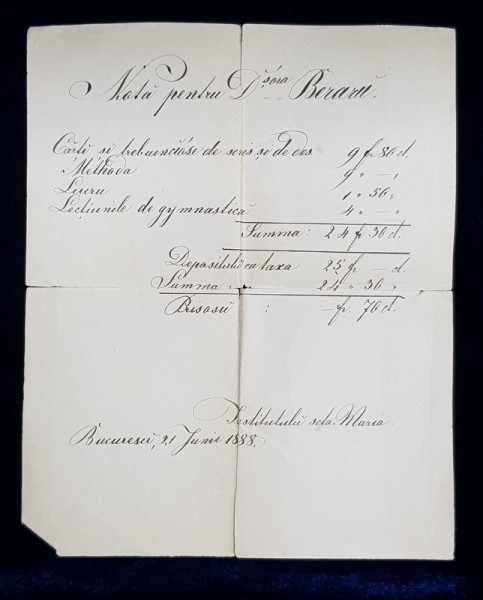 Notă pentru Dșóra Beraru.
Cărti si trebuincióse de scris și de des. 9 fr 80 d.
Méthoda 9 " — "
Lucru 1 " 50 "
Lecțiunile de gymnastică 4 " — "
Summa: 24 fr 30 d.
Depositulŭ cu taxa 25 fr — d.
Summa " " 24 " 30 "
Prisosu : — fr. 70 d.
Institutulŭ scta. Maria.
Bucurescĭ, 21 Junie 1888.